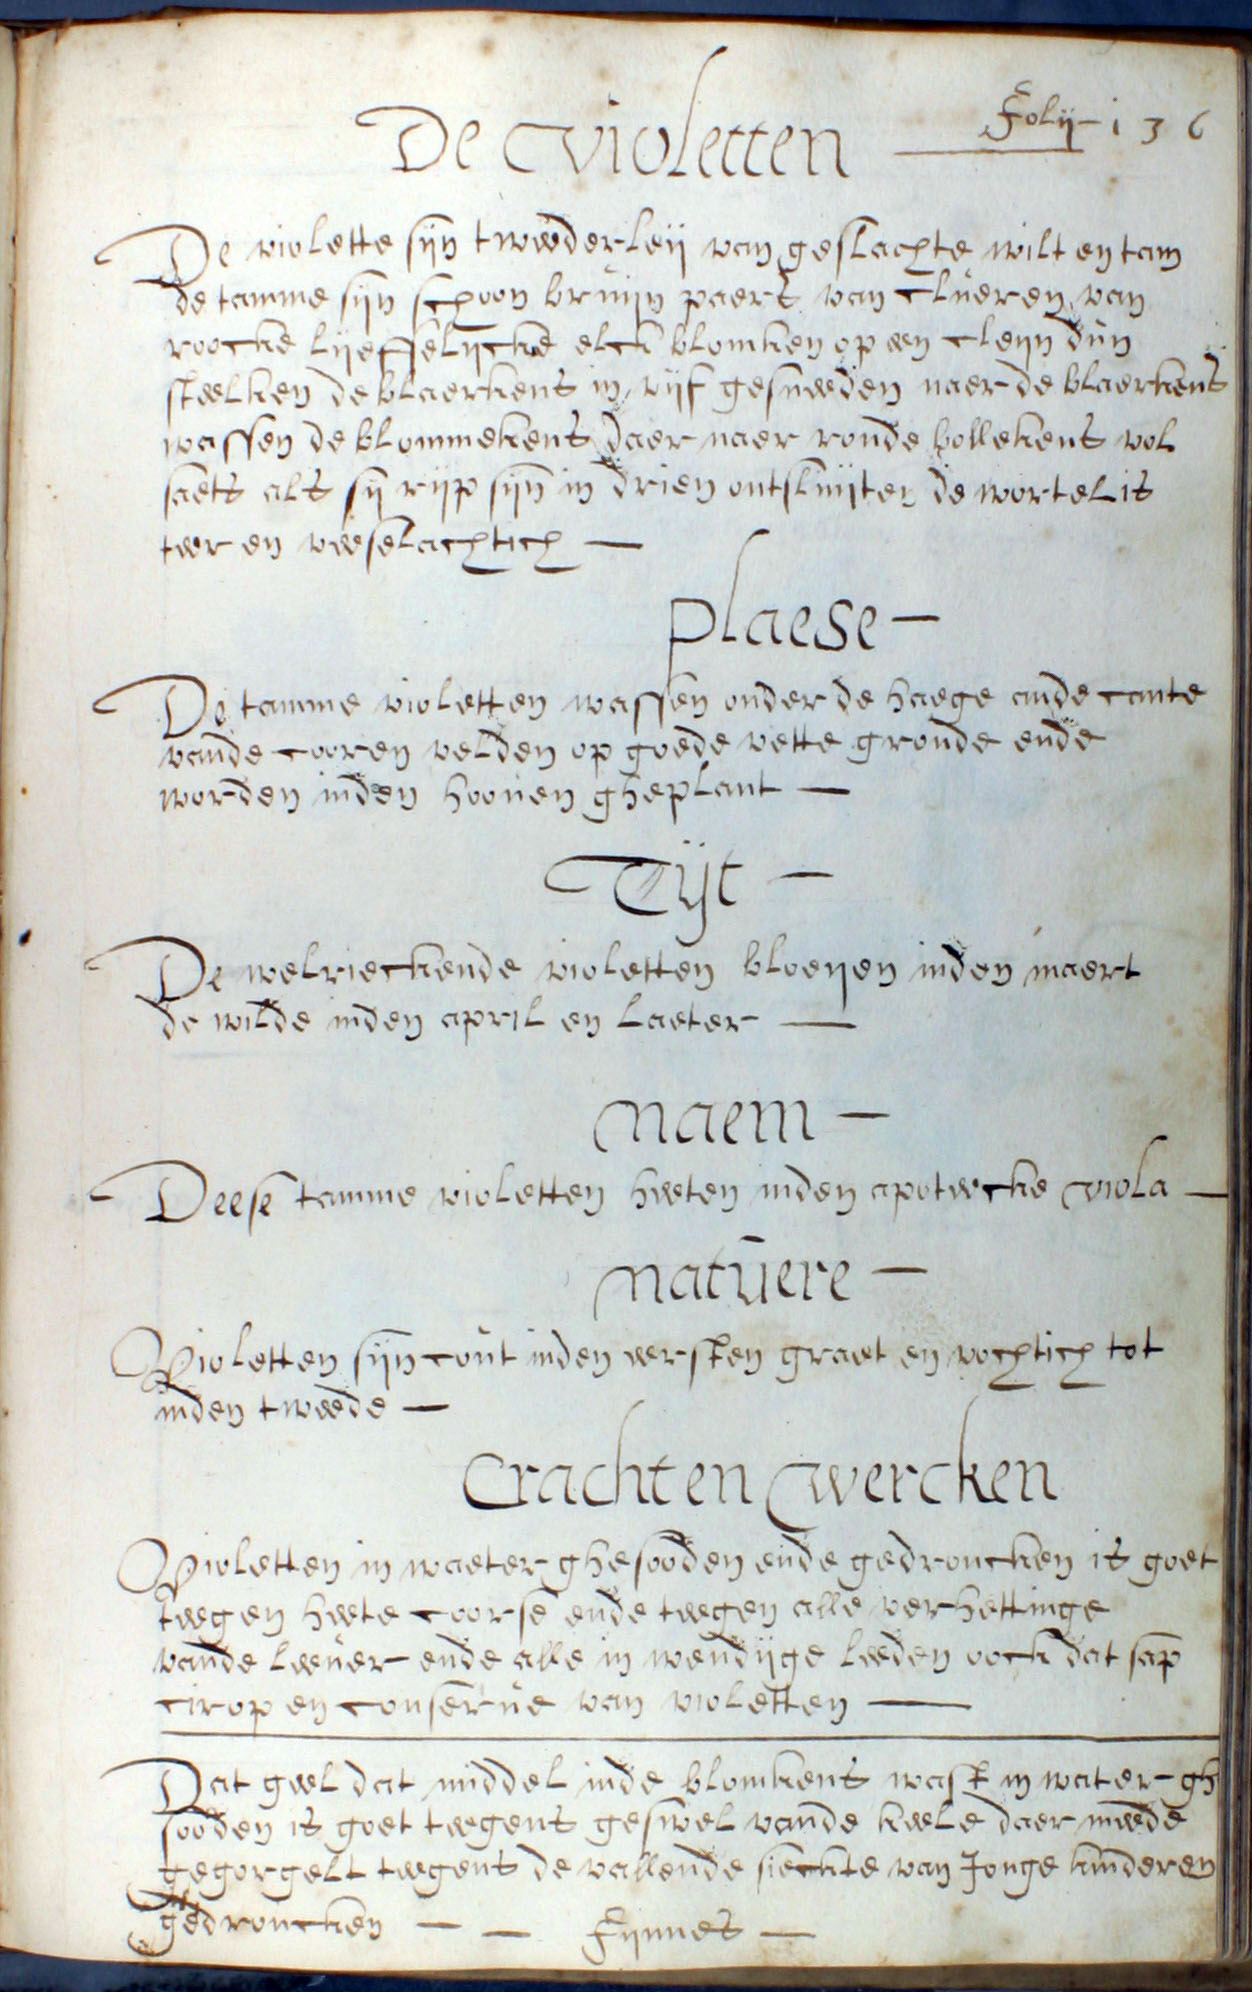 Folij 136
De violetten
De violette sijn tweederleij van geslachte wilt en tam
de tamme sijn schoon bruijn paers van clueren van
roocke lijeffelijcke elck blomken op een cleijn dun
steelken de blaerkens in vijf gesneeden naer de blaerkens
wassen de blommekens daer naer ronde bollekens vol
saets als sij rijp sijn in drien ontsluijten de wortel is
teer en veeselachtich —
plaese —
De tamme violetten wassen onder de haege ande cante
vande cooren velden op goede vette gronde ende
worden inden hooven gheplant —
Tijt —
De welrieckende violetten bloeijen inden maert
de wilde inden april en laeter —
naem —
Deese tamme violetten heeten inden apoteecke viola —
natuere —
Violetten sijn cout inden eersten graet en vochtich tot
inden tweede —
Crachten wercken
Violetten in waeter ghesooden ende gedroncken is goet
teegen heete coorse ende teegen alle verhettinge
vande leever ende alle in wendijge leeden oock dat sap
cirop en conserve van violetten —
Dat geel dat middel inde blomkens wast in water gh
sooden is goet teegens geswel vande keele daer meede
gegorgelt teegens de vallende sieckte van Jonge kinderen
gedroncken — — Fijnnes —